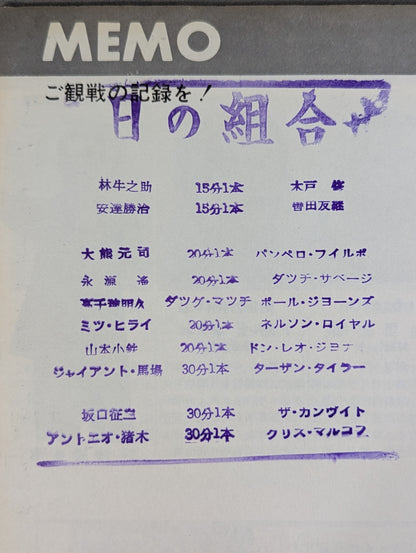 MEMO
ご観戦の記録を!
日の組合
林牛之助 15分1本 木戸修
安達勝治 15分1本 曽田友継
大熊元司 20分1本 パンペロ・フイルポ
永源遙 20分1本 ダツチ・サベージ
高千穂明久 ダツグ・マツチ ポール・ジヨーンズ
ミツ・ヒライ 20分1本 ネルソン・ロイヤル
山本小鉄 20分1本 ドン・レオ・ジヨナ
ジャイアント・馬場 30分1本 ターザン・タイラー
坂口征二 30分1本 ザ・カンヴイト
アントニオ・猪木 30分1本 クリス・マルコフ